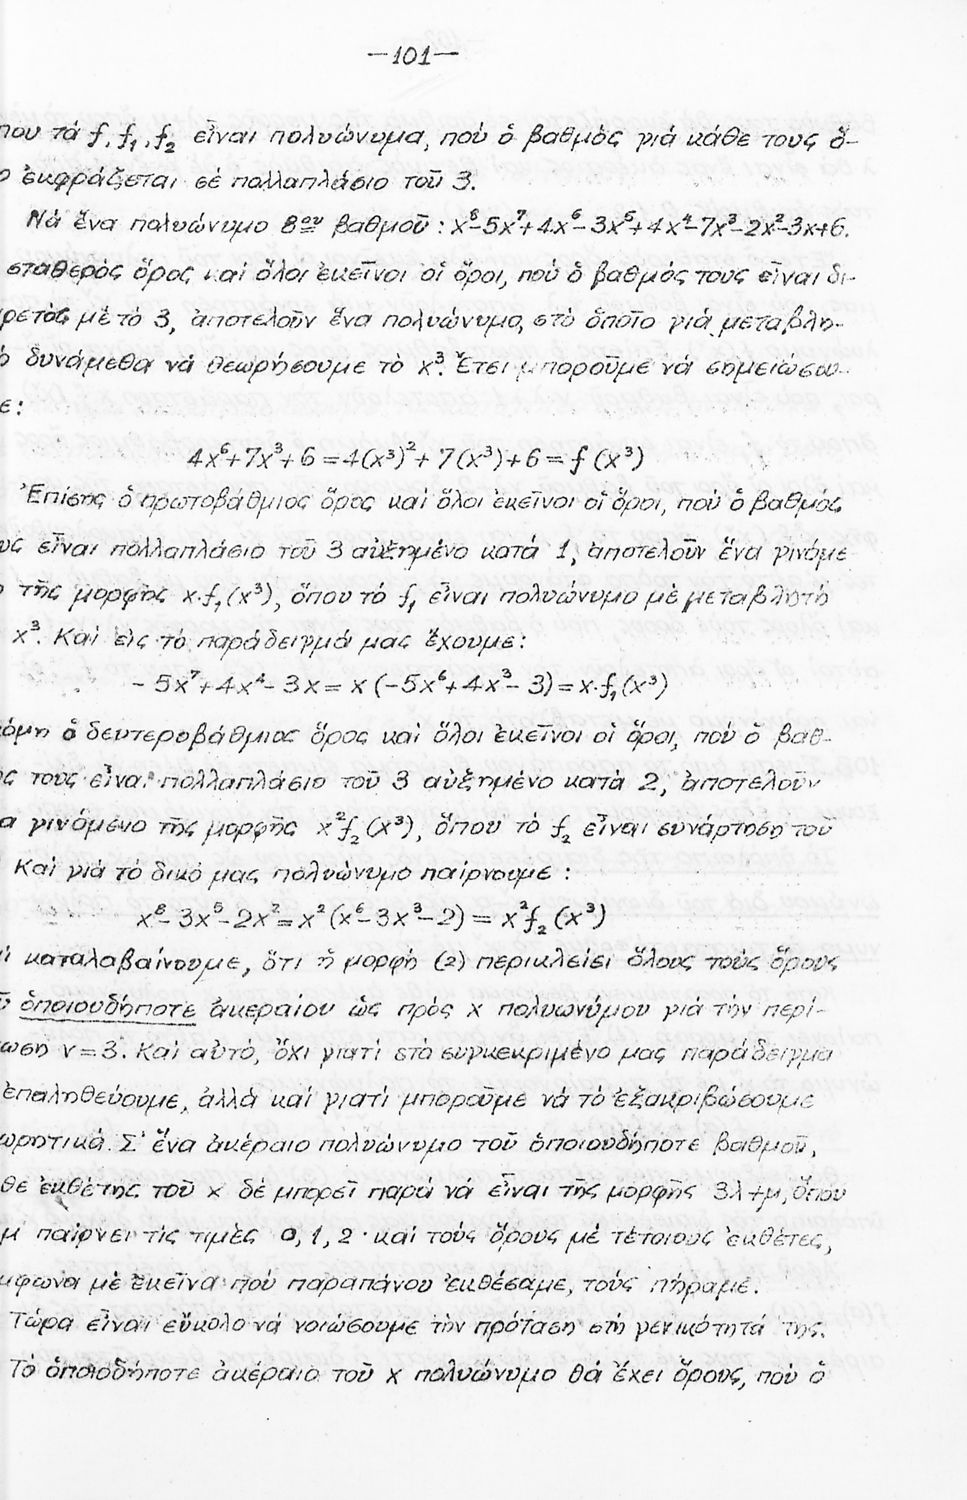 —101—
που τά f, f₁, f₂ εἶναι πολυώνυμα, πού ὁ βαθμός γιά κάθε τους ὅ-
ο ἐκφράζεται σέ πολλαπλάσιο τοῦ 3.
Νά ἕνα πολυώνυμο 8ου βαθμοῦ: x⁸-5x⁷+4x⁶-3x⁵+4x⁴-7x³-2x²-3x+6.
σταθερός ὅρος καί ὅλοι ἐκεῖνοι οἱ ὅροι, πού ὁ βαθμός τους εἶναι δι-
ρετός μέ τό 3, ἀποτελοῦν ἕνα πολυώνυμο, στό ὁποῖο γιά μεταβλη-
ή δυνάμεθα νά θεωρήσουμε τό x³. Ἔτσι μποροῦμε νά σημειώσου-
ε:
4x⁶+7x³+6=4(x³)²+7(x³)+6=f(x³)
Ἐπίσης ὁ πρωτοβάθμιος ὅρος καί ὅλοι ἐκεῖνοι οἱ ὅροι, πού ὁ βαθμός
υς εἶναι πολλαπλάσιο τοῦ 3 αὐξημένο κατά 1, ἀποτελοῦν ἕνα γινόμε
ο τῆς μορφῆς x·f₁(x³), ὅπου τό f₁ εἶναι πολυώνυμο μέ μεταβλητή
x³. Καί εἰς τό παράδειγμά μας ἔχουμε:
-5x⁷+4x⁴-3x=x(-5x⁶+4x³-3)=x·f₁(x³)
κόμη ὁ δευτεροβάθμιος ὅρος καί ὅλοι ἐκεῖνοι οἱ ὅροι, πού ὁ βαθ-
ς τους εἶναι πολλαπλάσιο τοῦ 3 αὐξημένο κατά 2, ἀποτελοῦν
α γινόμενο τῆς μορφῆς x²f₂(x³), ὅπου τό f₂ εἶναι συνάρτηση τοῦ
Καί γιά τό δικό μας πολυώνυμο παίρνουμε:
x⁸-3x⁵-2x²=x²(x⁶-3x³-2)=x²f₂(x³)
ί καταλαβαίνουμε, ὅτι ἡ μορφή (2) περικλείει ὅλους τούς ὅρους
ῦ ὁποιουδήποτε ἀκεραίου ὡς πρός x πολυωνύμου γιά τήν περί-
ωση ν=3. Καί αὐτό, ὄχι γιατί στό συγκεκριμένο μας παράδειγμα
ἐπαληθεύουμε, ἀλλά καί γιατί μποροῦμε νά τό ἐξακριβώσουμε
ωρητικά. Σ' ἕνα ἀκέραιο πολυώνυμο τοῦ ὁποιουδήποτε βαθμοῦ,
θε ἐκθέτης τοῦ x δέ μπορεῖ παρά νά εἶναι τῆς μορφῆς 3λ+μ, ὅπου
μ παίρνει τίς τιμές 0,1,2· καί τούς ὅρους μέ τέτοιους ἐκθέτες,
μφωνα μέ ἐκεῖνα πού παραπάνου ἐκθέσαμε, τούς πήραμε.
Τώρα εἶναι εὔκολο νά νοιώσουμε τήν πρόταση στή γενικότητά της.
Τό ὁποιοδήποτε ἀκέραιο τοῦ x πολυώνυμο θά ἔχει ὅρους, πού ὁ